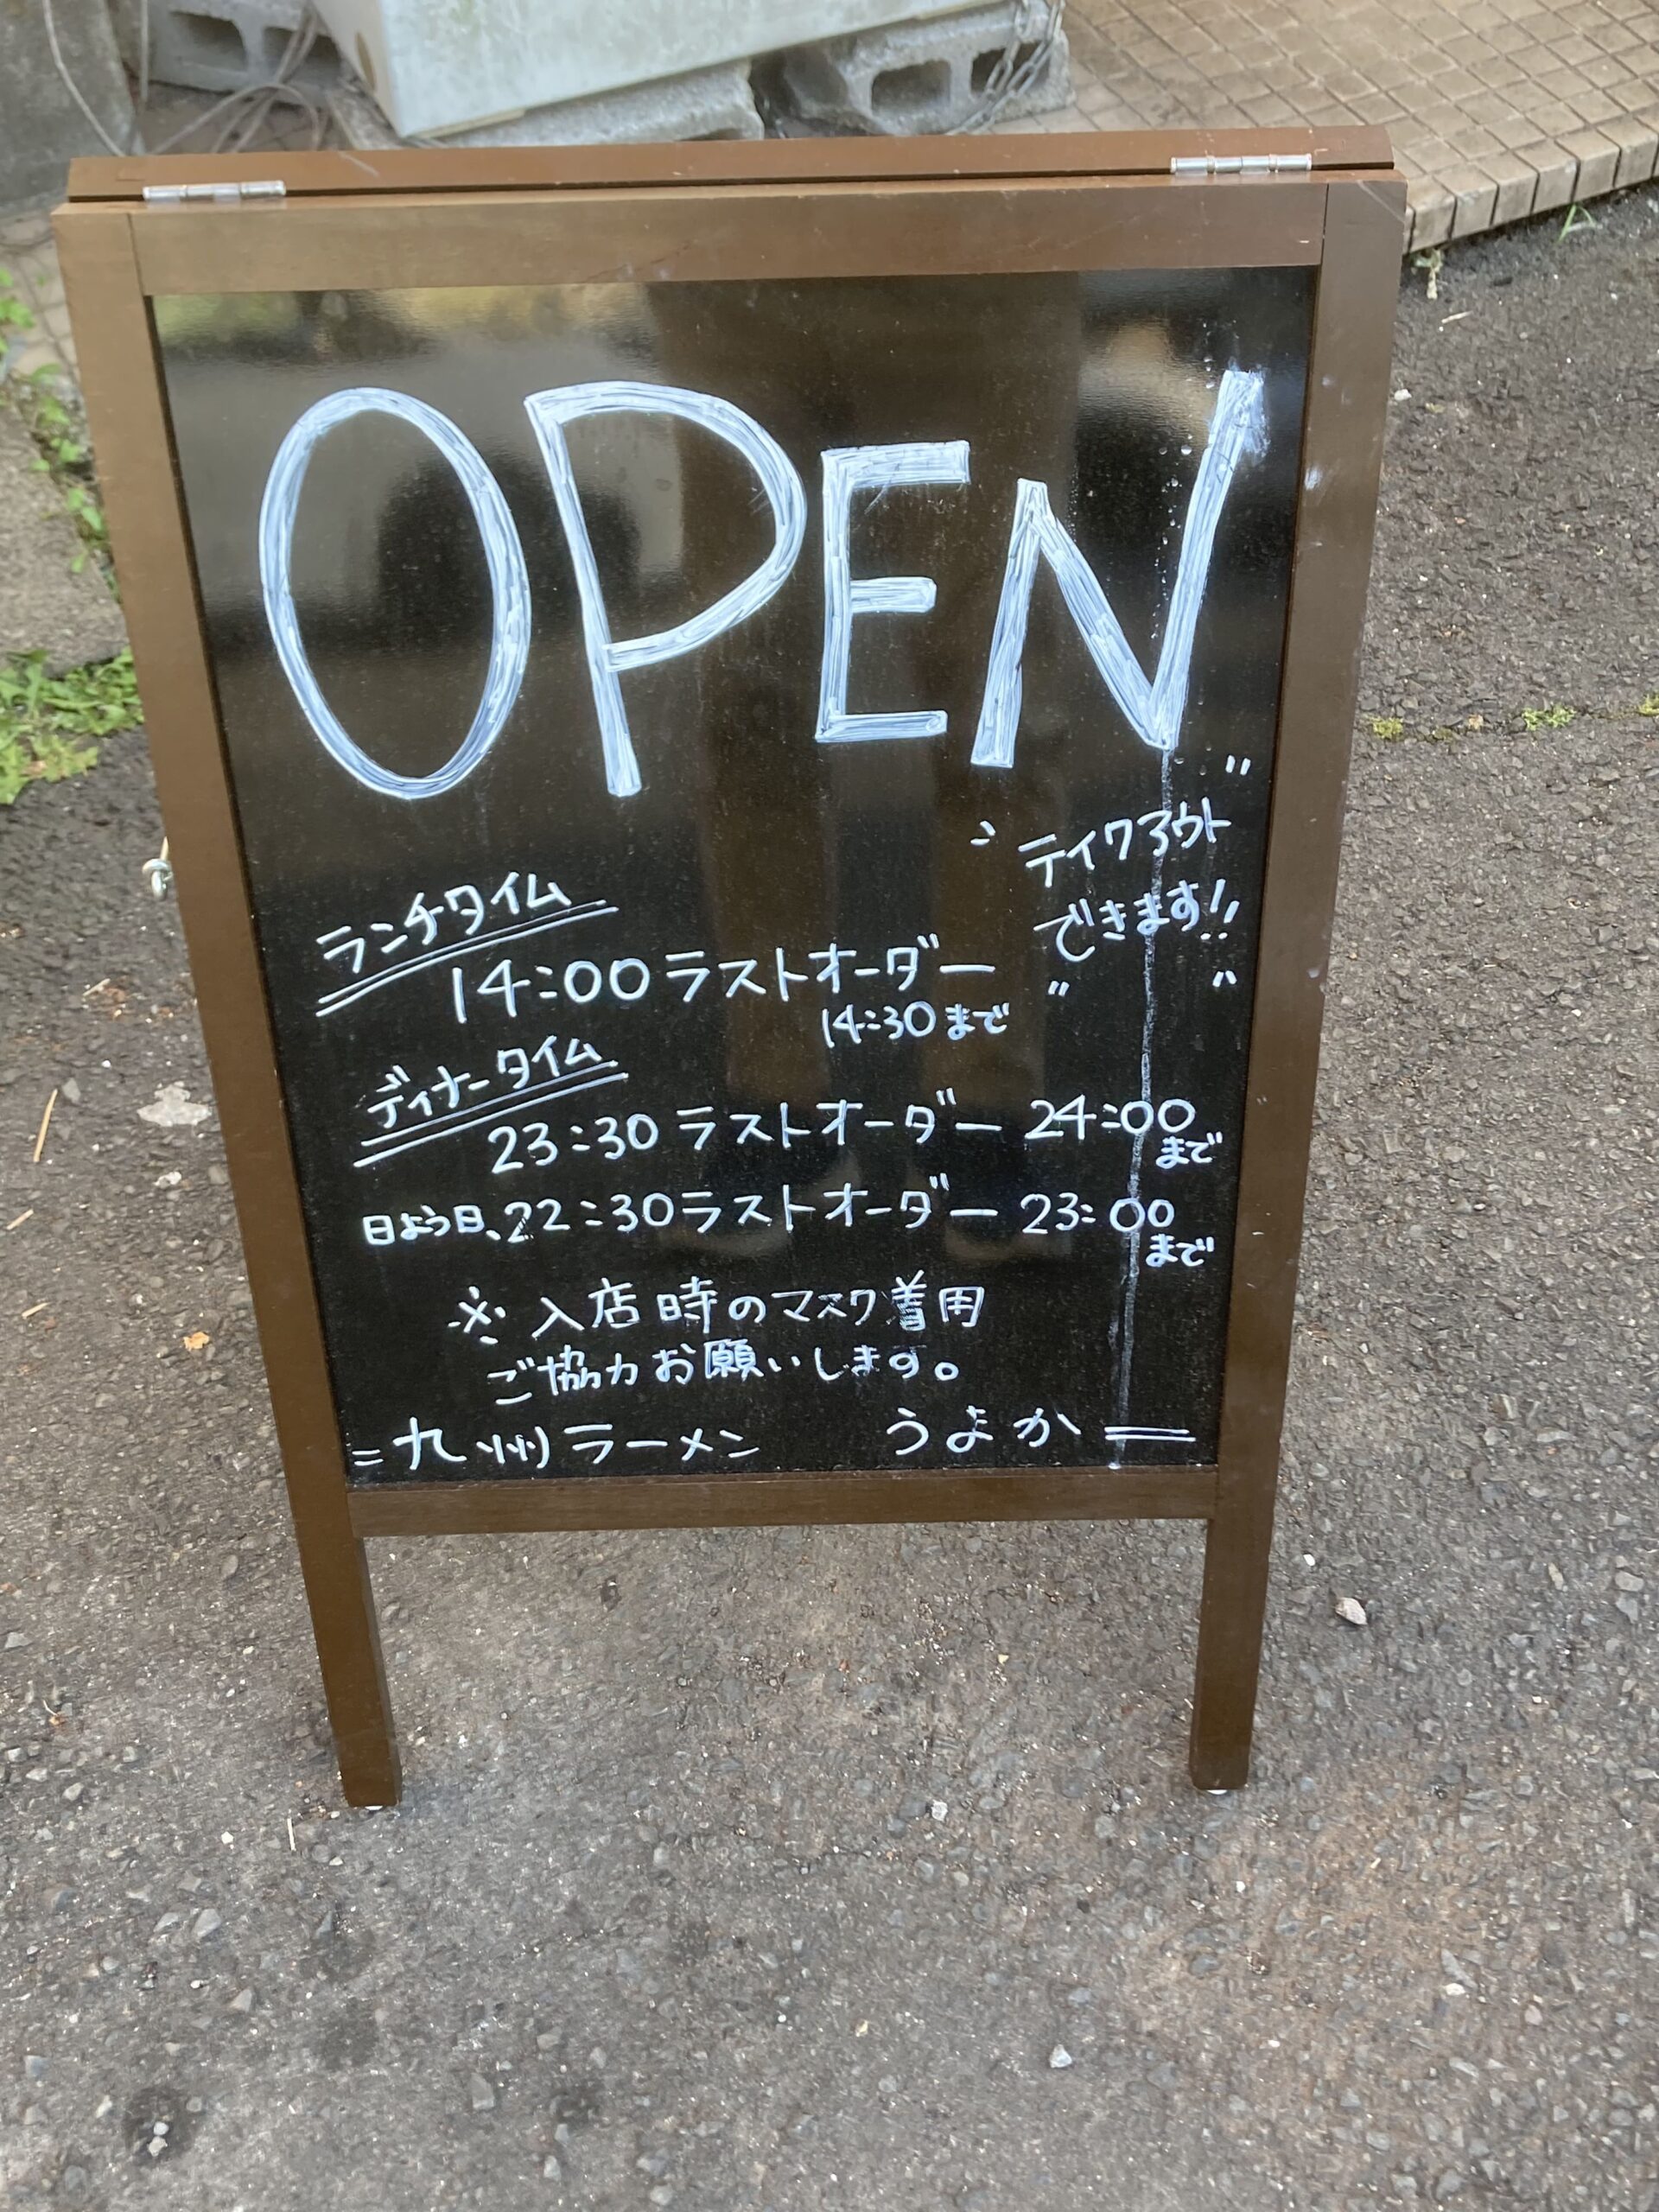 OPEN
テイクアウト
できます!!
ランチタイム
14:00 ラストオーダー
14:30 まで
ディナータイム
23:30 ラストオーダー 24:00
まで
日よう日、22:30 ラストオーダー 23:00
まで
※ 入店時のマスク着用
ご協力お願いします。
= 九州ラーメン うよか =